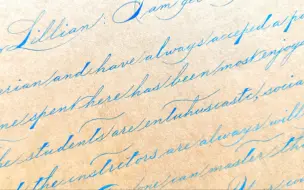 Lillian: I am
arian and have always acceped a p
me spent here has been most enjoy
he students are entuhusiasti, social
d the instrctors are always will
one can master th